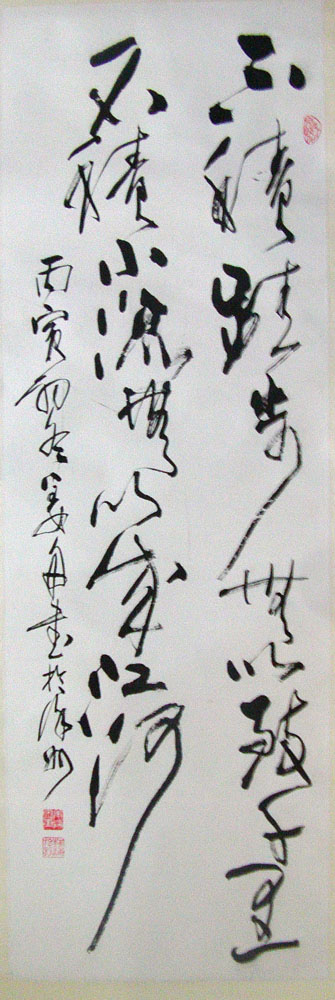 不積跬步無以致千里
不積小流無以成江河
丙寅初冬姜書於徐州